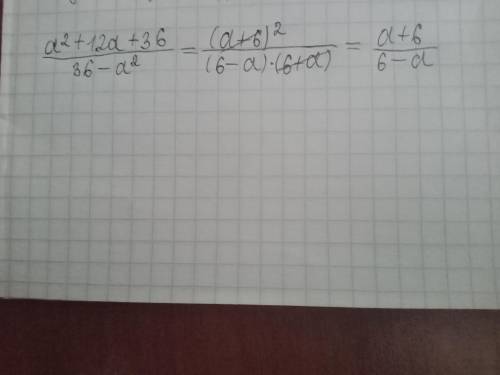 (a²+12a+36)/(36-a²) = (a+6)²/((6-a)·(6+a)) = (a+6)/(6-a)